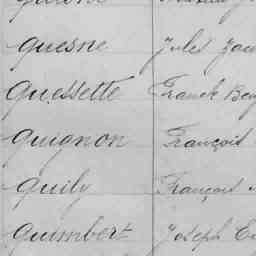 Quesne Jules
Quessette Franck
Quignon François
Quily François
Quimbert Joseph